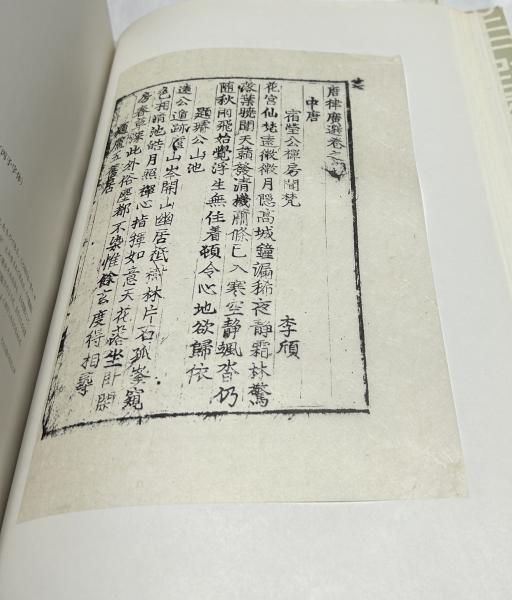 唐律廣選卷之
中唐
宿瑩公禪房聞梵
李頎
花宮仙梵遠微微月隱高城鐘漏稀夜靜霜林驚
落葉曉聞天籟發清機蕭條已入寒空靜颯沓仍
随秋雨飛始覺浮生無住着頓令心地欲歸依
題璿公山池
遠公遁跡廬山岑開山幽居祗樹林片石孤峯窺
色相清池皓月照禪心指揮如意天花落坐卧閑
房春草深此外俗塵都不染惟餘玄度得相尋
題盧五舊居